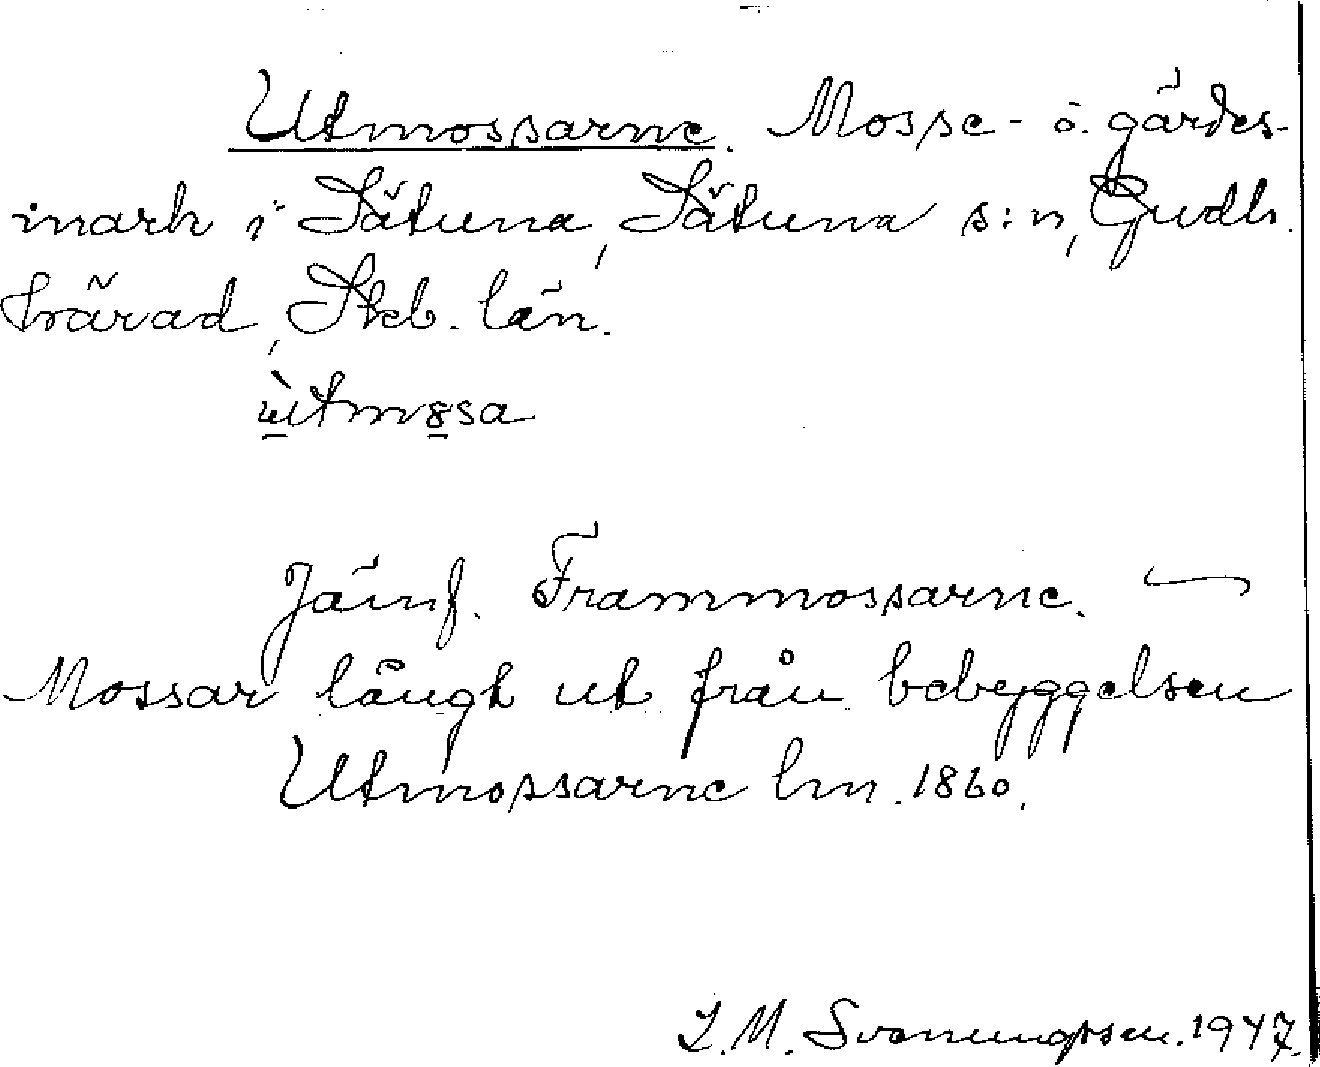 Utmossarne. Mosse- o. gärdes-
mark i Sätuna, Sätuna s:n, Gudh.
härad, Skb. län.
ùtmossa
Jämf. Frammossarne. —
Mossar långt ut från bebyggelsen
Utmossarne lm. 1860.
L. M. Svenungsson. 1947.